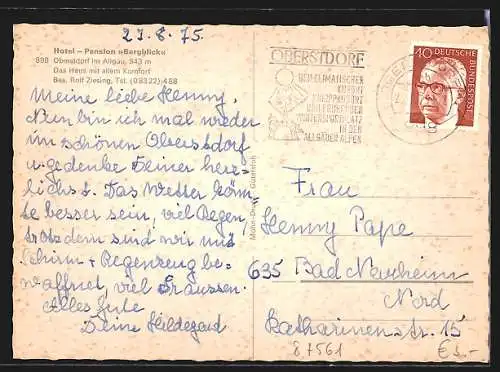 27.8.75.
Hotel - Pension »Bergblick«
898 Oberstdorf im Allgäu, 843 m
Das Haus mit allem Komfort
Bes. Rolf Ziesing, Tel. (08322) 488
Meine liebe Henny,
Nun bin ich mal wieder
im schönen Oberstdorf
u. gedenke Deiner herz-
lichst. Das Wetter könn-
te besser sein, viel Regen,
trotzdem sind wir mit
Schirm + Regenzeug be-
waffnet, viel draussen.
Alles Gute
Deine Hildegard
OBERSTDORF
HEILKLIMATISCHER
KURORT
KNEIPPKURORT
UND FÜHRENDER
WINTERSPORTPLATZ
IN DEN
ALLGÄUER ALPEN
40 DEUTSCHE
BUNDESPOST
Frau
Henny Pape
635 Bad Nauheim
Nord
Katharinenstr. 15
87561